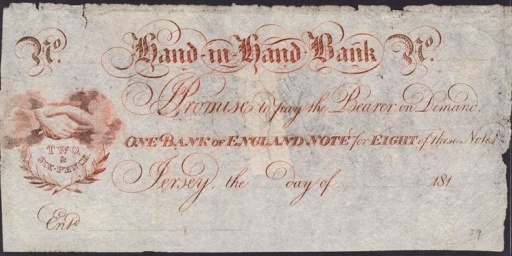 No. Hand-in-Hand Bank No.
I Promise to pay the Bearer on Demand,
ONE BANK OF ENGLAND NOTE for EIGHT of these Notes
TWO
&
SIX-PENCE
Jersey, the day of 181
Entd.
39